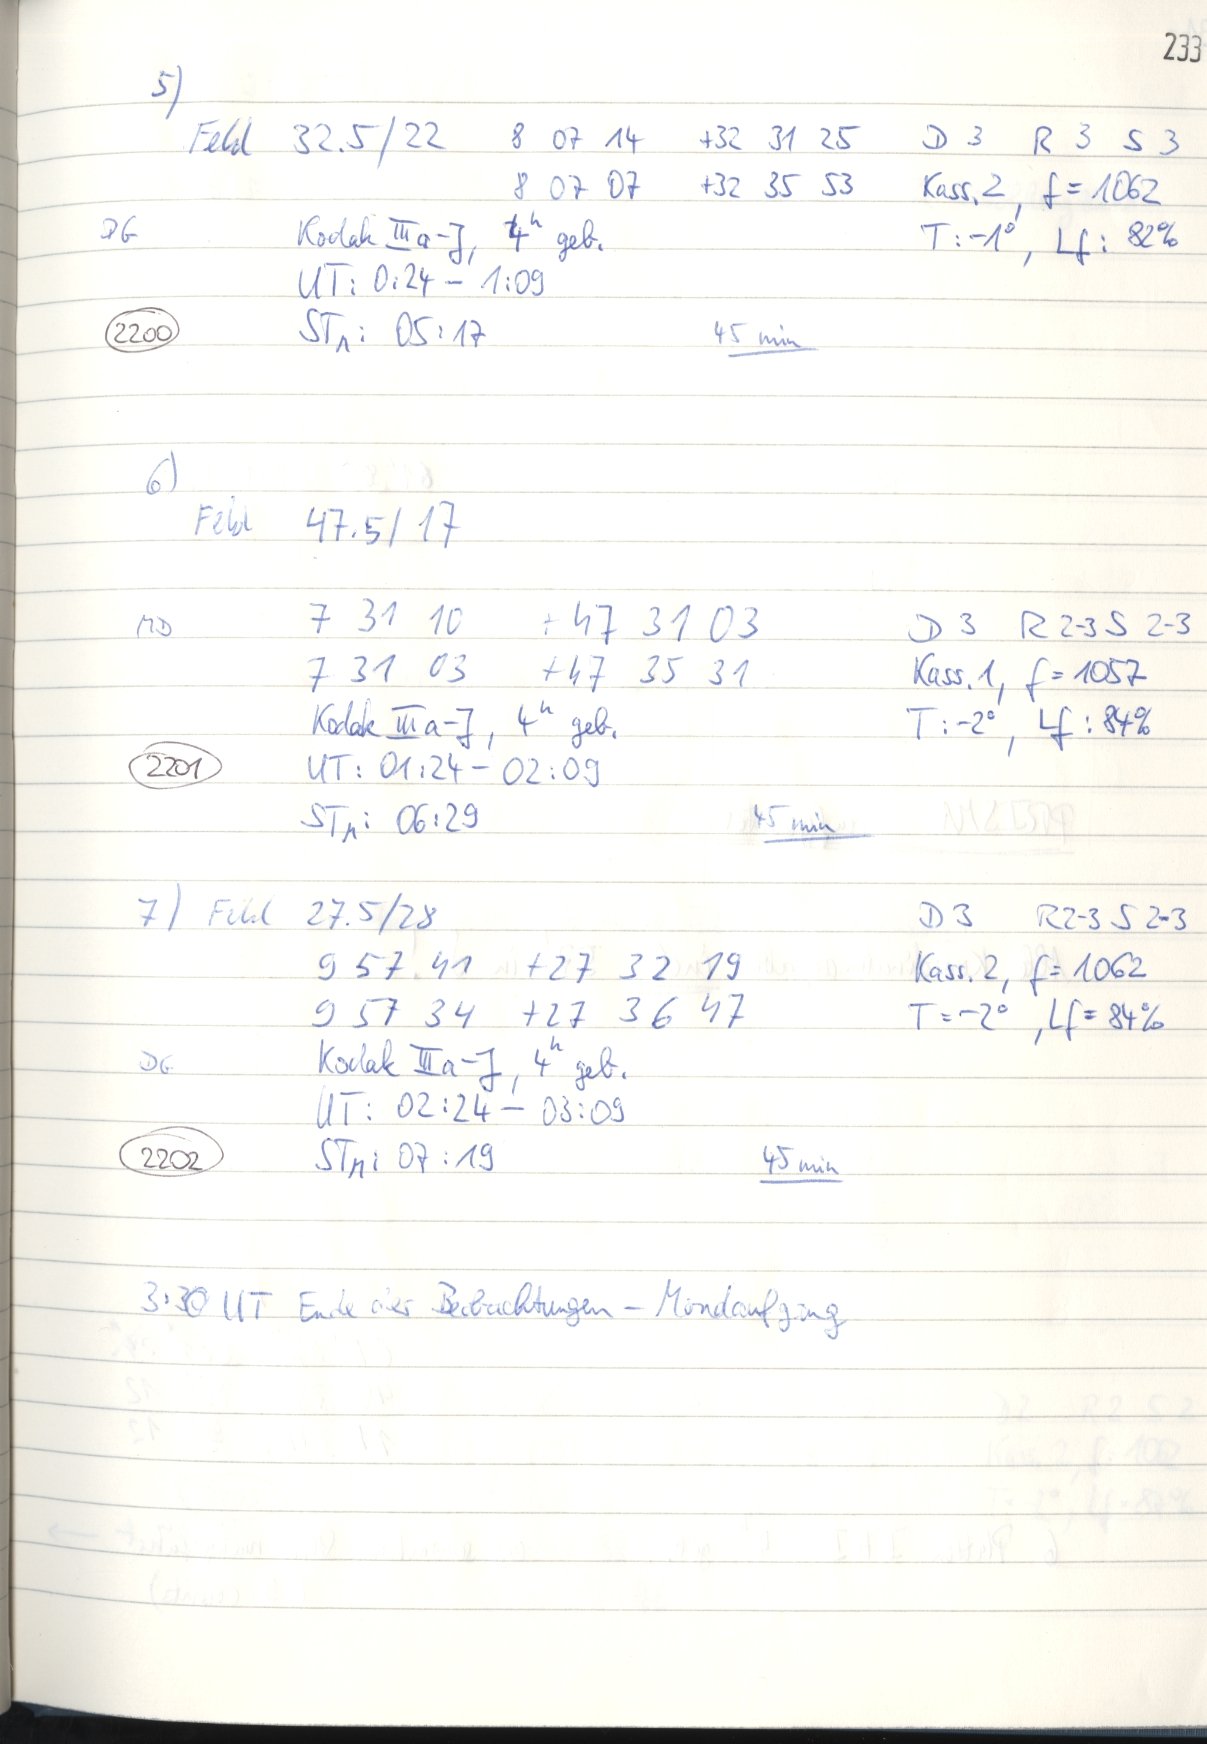 233
5)
Feld 32.5/22 8 07 14 +32 31 25 D 3 R 3 S 3
8 07 07 +32 35 53 Kass. 2, f = 1062
DG Kodak IIIa-J, 4h geb. T: -1°, Lf: 82%
UT: 0:24 - 1:09
2200 STA: 05:17 45 min
6)
Feld 47.5/17
MD 7 31 10 +47 31 03 D 3 R 2-3 S 2-3
7 31 03 +47 35 31 Kass. 1, f = 1057
Kodak IIIa-J, 4h geb. T: -2°, Lf: 84%
2201 UT: 01:24 - 02:09
STA: 06:29 45 min
7) Feld 27.5/28 D 3 R 2-3 S 2-3
9 57 41 +27 32 19 Kass. 2, f = 1062
9 57 34 +27 36 47 T = -2°, Lf = 84%
DG Kodak IIIa-J, 4h geb.
UT: 02:24 - 03:09
2202 STA: 07:19 45 min
3:30 UT Ende der Beobachtungen - Mondaufgang